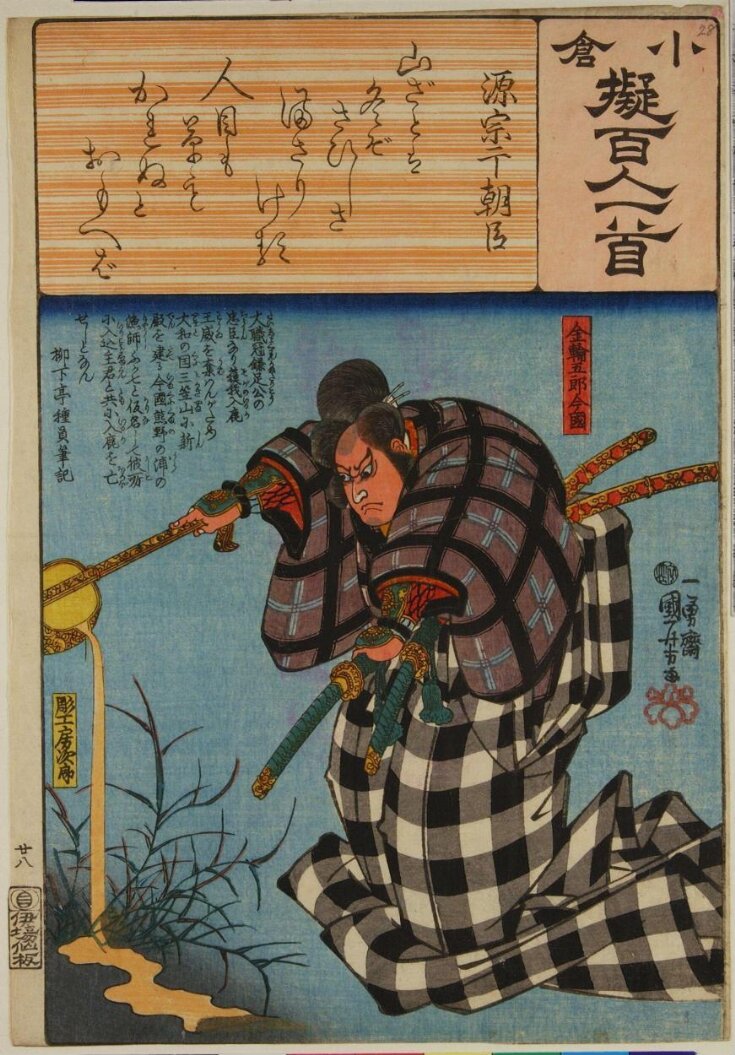 小倉
擬百人一首
28
源宗于朝臣
山ざとは
冬ぞ
さひしさ
まさりける
人目も
草も
かれぬと
おもへば
金輪五郎今國
大職冠鎌足公の
忠臣なり蘇我入鹿
王威を棄んが為め
大和の国三笠山に新
殿を建る今國熊野の浦の
漁師ふか七と仮名して彼所
に入込主君と共に入鹿を亡
せしとなん
柳下亭種員筆記
一勇齋
國芳画
彫工房次郎
廿八
伊場仙板